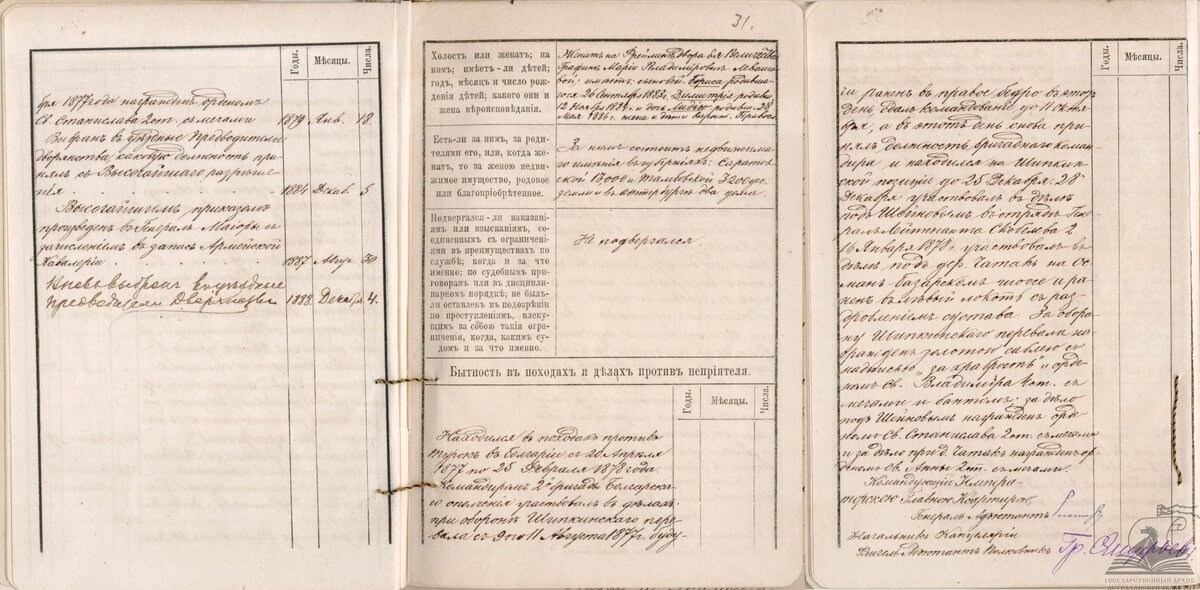 Годы.
Мѣсяцы.
Числа.
бря 1877 года награжденъ орденомъ
Св. Станислава 2 ст. съ мечами 1879 Янв. 18.
Выбранъ въ уѣздные Предводители
дворянства, каковую должность при-
нялъ съ Высочайшаго разрѣше-
нія 1884 Декаб. 5
Высочайшимъ приказомъ
произведенъ въ Генералъ Маіоры съ
зачисленіемъ въ запасъ Армейской
Кавалеріи 1887 Авгус. 30
Вновь выбранъ Уѣздные
Предводителем Дворянства 1888 Декабр. 4.
31.
Холостъ или женатъ; на
комъ; имѣетъ-ли дѣтей;
годъ, мѣсяцъ и число рож-
денія дѣтей; какого они и
жена вѣроисповѣданія.
Женатъ на Фрейлинѣ Двора Ея Величества
Графинѣ Маріи Владиміровнѣ
имѣетъ: сыновей: Бориса родивша-
гося 26 1882, Димитрія родивш.
12 Ноября 1884 и дочь Лидію родивш. 28
Мая 1886 г. жена и дѣти
Есть-ли за нимъ, за роди-
телями его, или, когда же-
натъ, то за женою недви-
жимое имущество, родовое
или благопріобрѣтенное.
За нимъ состоитъ недвижима-
го имѣнія въ губерніяхъ: Саратов-
ской 13,000 и Тамбовской 3200 де-
сятинъ и въ Петербургѣ два дома.
Подвергался-ли наказані-
ямъ или взысканіямъ, со-
единеннымъ съ ограничені-
ями въ преимуществахъ по
службѣ; когда и за что
именно; по судебнымъ при-
говорамъ или въ дисципли-
нарномъ порядкѣ; не былъ-
ли оставленъ въ подозрѣніи
по преступленіямъ, влеку-
щимъ за собою такія огра-
ниченія, когда, какимъ су-
домъ и за что именно.
Не подвергался.
Бытность въ походахъ и дѣлахъ противъ непріятеля.
Годы.
Мѣсяцы.
Числа.
Находился въ походахъ противъ
турокъ въ Болгаріи съ 20 Апрѣля
1877 по 25 Февраля 1878 года.
Командиромъ 2й бригады Болгарска-
го ополченія участвовалъ въ дѣлахъ
при оборонѣ Шипкинскаго пере-
вала съ 9 по 11 Августа 1877 г. буду-
Годы.
Мѣсяцы.
Числа.
чи раненъ въ правое бедро въ этотъ
день, сдалъ командованіе до 11
бря, а въ этотъ день снова при-
нялъ должность бригаднаго коман-
дира и находился на Шипкин-
ской позиціи до 25 Декабря. 28
Декабря участвовалъ въ дѣлѣ
подъ Шейновымъ въ отрядѣ Гене-
ралъ Лейтенанта Скобелева 2
16 Января 1878 г. участвовалъ въ
дѣлѣ подъ дер. Чатакъ на Ос-
манъ-Базарскомъ шоссе и ра-
ненъ въ лѣвый локоть съ раз-
дробленіемъ сустава. За оборо-
ну Шипкинскаго перевала на-
гражденъ золотою саблею съ
надписью „за храбрость" и орде-
номъ Св. Владиміра 4 ст. съ
мечами и бантомъ; за дѣло
подъ Шейновымъ награжденъ орде-
номъ Св. Станислава 2 ст. съ мечами
и за дѣло при д. Чатакъ награжденъ ор-
деномъ Св. Анны 2 ст. съ мечами.
Командующій Импера-
торскою Главною Квартирою,
Генералъ Адъютантъ
Начальникъ Канцеляріи
Флигель Адъютантъ Полковникъ Гр.
ГОСУДАРСТВЕННЫЙ АРХИВ